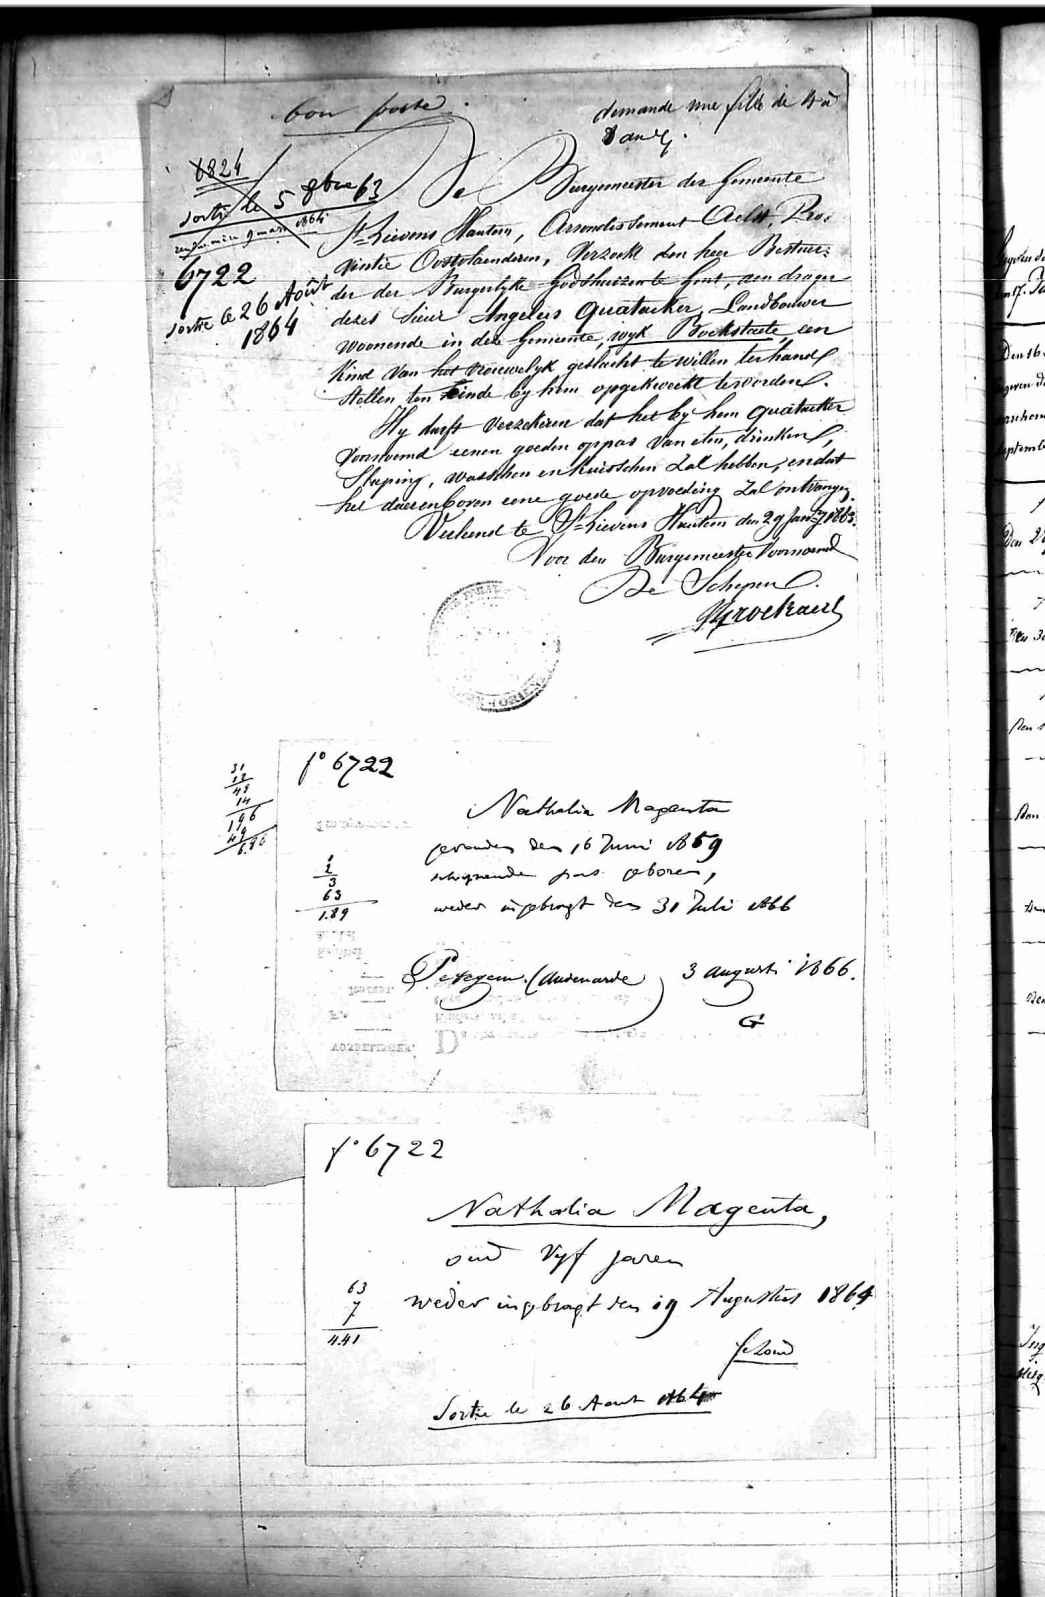 bon poste.
demande une fille de 4 à
8 ans.
6824
sortie le 5 8bre 63
1864
6722
sortie le 26 Août
1864
De Burgemeester der Gemeente
St Lievens Hautem, Arrondissement Aelst, Pro-
vintie Oostvlaenderen, Verzoekt den heer Bestuer-
der der Burgerlyke Godshuizen te Gent, aen drager
dezes Sieur Angelus Quatacker, Landbouwer
woonende in deze Gemeente, wyk Boekstaele, een
Kind van het vrouwelyk geslacht te willen ter hand
stellen ten Einde by hem opgekweekt te worden.
Hy durft verzekeren dat het by hem Quatacker
voornoemd eenen goeden oppas van eten, drinken,
Slaping, wasschen en kuisschen Zal hebben, en dat
het daerenboven eene goede opvoeding Zal ontvangen.
Verleend te St Lievens Hautem den 29 1863.
Voor den Burgemeester Voornoemd
De Schepen.
31
18
49
14
196
49
6.86
f° 6722
Nathalia Magenta
gevonden den 16 Juni 1859
schynende pas geboren,
weder ingebragt den 31 Juli 1866
1
2
3
63
1.89
Petegem (Audenarde) 3 augusti 1866.
G
f° 6722
Nathalia Magenta,
oud Vyf jaren
weder ingebragt den 19 Augustus 1864
63
7
4.41
gezond
Sortie le 26 Aout 1864